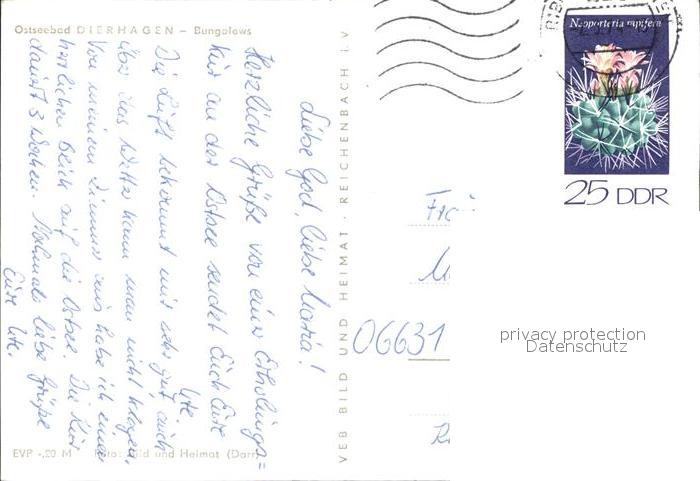 Ostseebad DIERHAGEN – Bungalows
Liebe God, liebe Maria!
Herzliche Grüße von einer Erholungs=
kur an der Ostsee sendet Euch Eure
Ute.
Die Luft bekommt mir sehr gut, auch
über das Wetter kann man nicht klagen.
Von meinem Zimmer aus habe ich einen
herrlichen Blick auf die Ostsee. Die Kur
dauert 3 Wochen. Nochmals liebe Grüße
Eure Ute.
EVP -,20 M Foto: Bild und Heimat (Darr)
VEB BILD UND HEIMAT · REICHENBACH i. V
Neoporteria rapifera
25 DDR
06631
privacy protection
Datenschutz